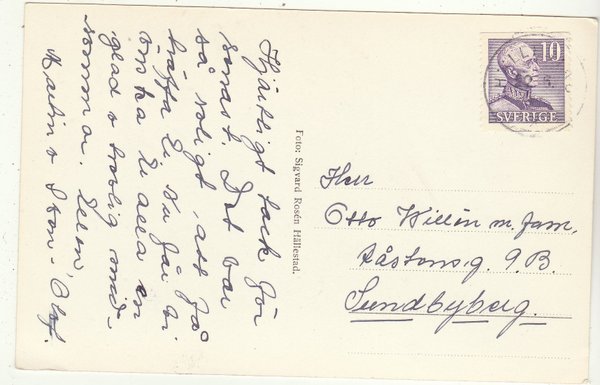 Hjärtligt tack för
senast. Det var
så roligt att få
träffa Er. Nu får vi
önska Er alla en
glad o trevlig mid-
sommar. Ellen,
Martin o Sven-Olof.
Foto: Sigvard Rosén Hällestad.
10
SVERIGE
Herr
Otto Willén m. fam.
Råstensg. 9.B.
Sundbyberg.